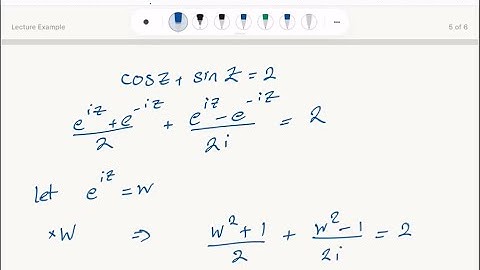 Lecture Example 5 of 6
cosz + sinz = 2
(e^{iz} + e^{-iz})/2 + (e^{iz} - e^{-iz})/2i = 2
let e^{iz} = w
×w ⇒ (w^2 + 1)/2 + (w^2 - 1)/2i = 2